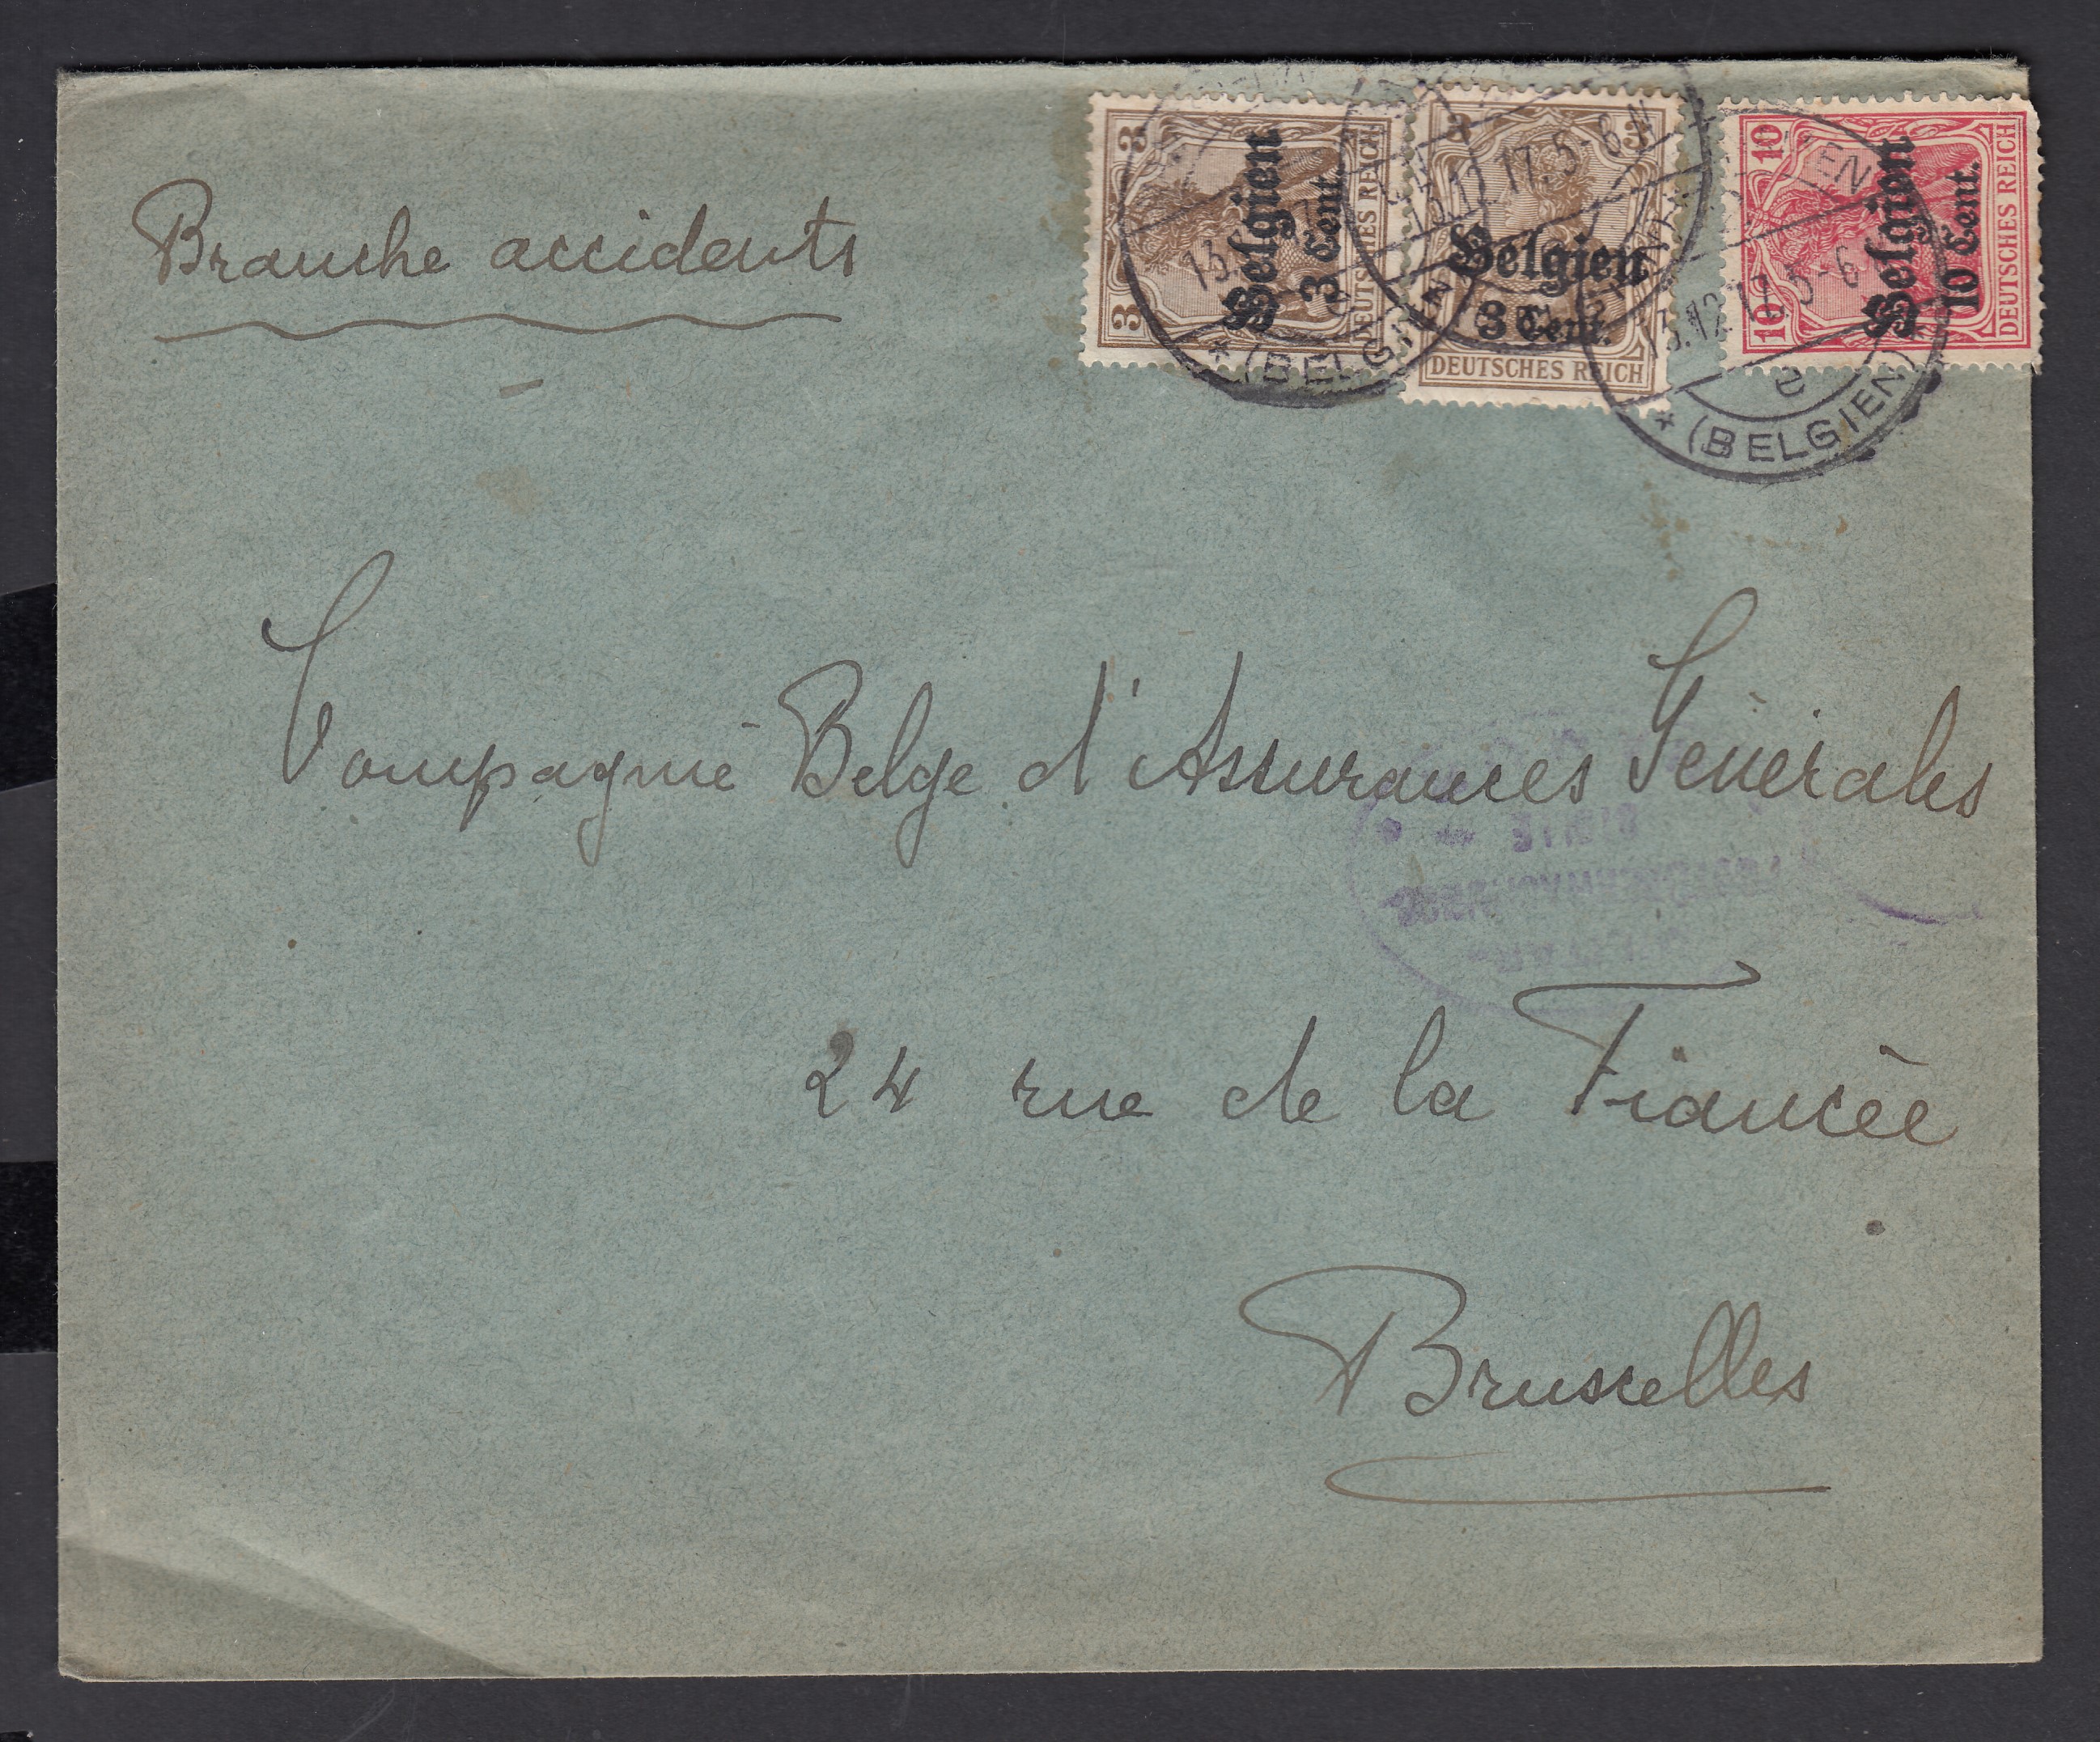 Branche accidents
3 3 Belgien 3 Cent. DEUTSCHES REICH
3 Belgien
3 Cent.
DEUTSCHES REICH
10 10 Belgien 10 Cent. DEUTSCHES REICH
17.5-6N
* (BELGIEN)
13.12.17.5-6
* (BELGIEN)
Compagnie Belge d'Assurances Générales
24 rue de la Fiancée
Bruxelles